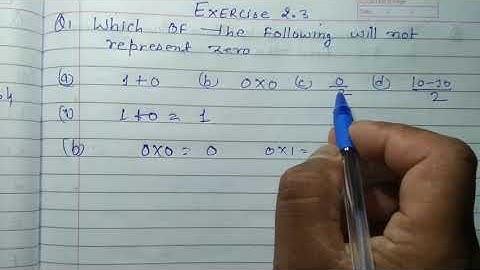 EXERCISE 2.3
Q1 Which of the following will not
represent zero
(a) 1+0 (b) 0×0 (c) 0/ (d) 10-10/2
(a) 1+0 = 1
(b) 0×0 = 0 0×1 =